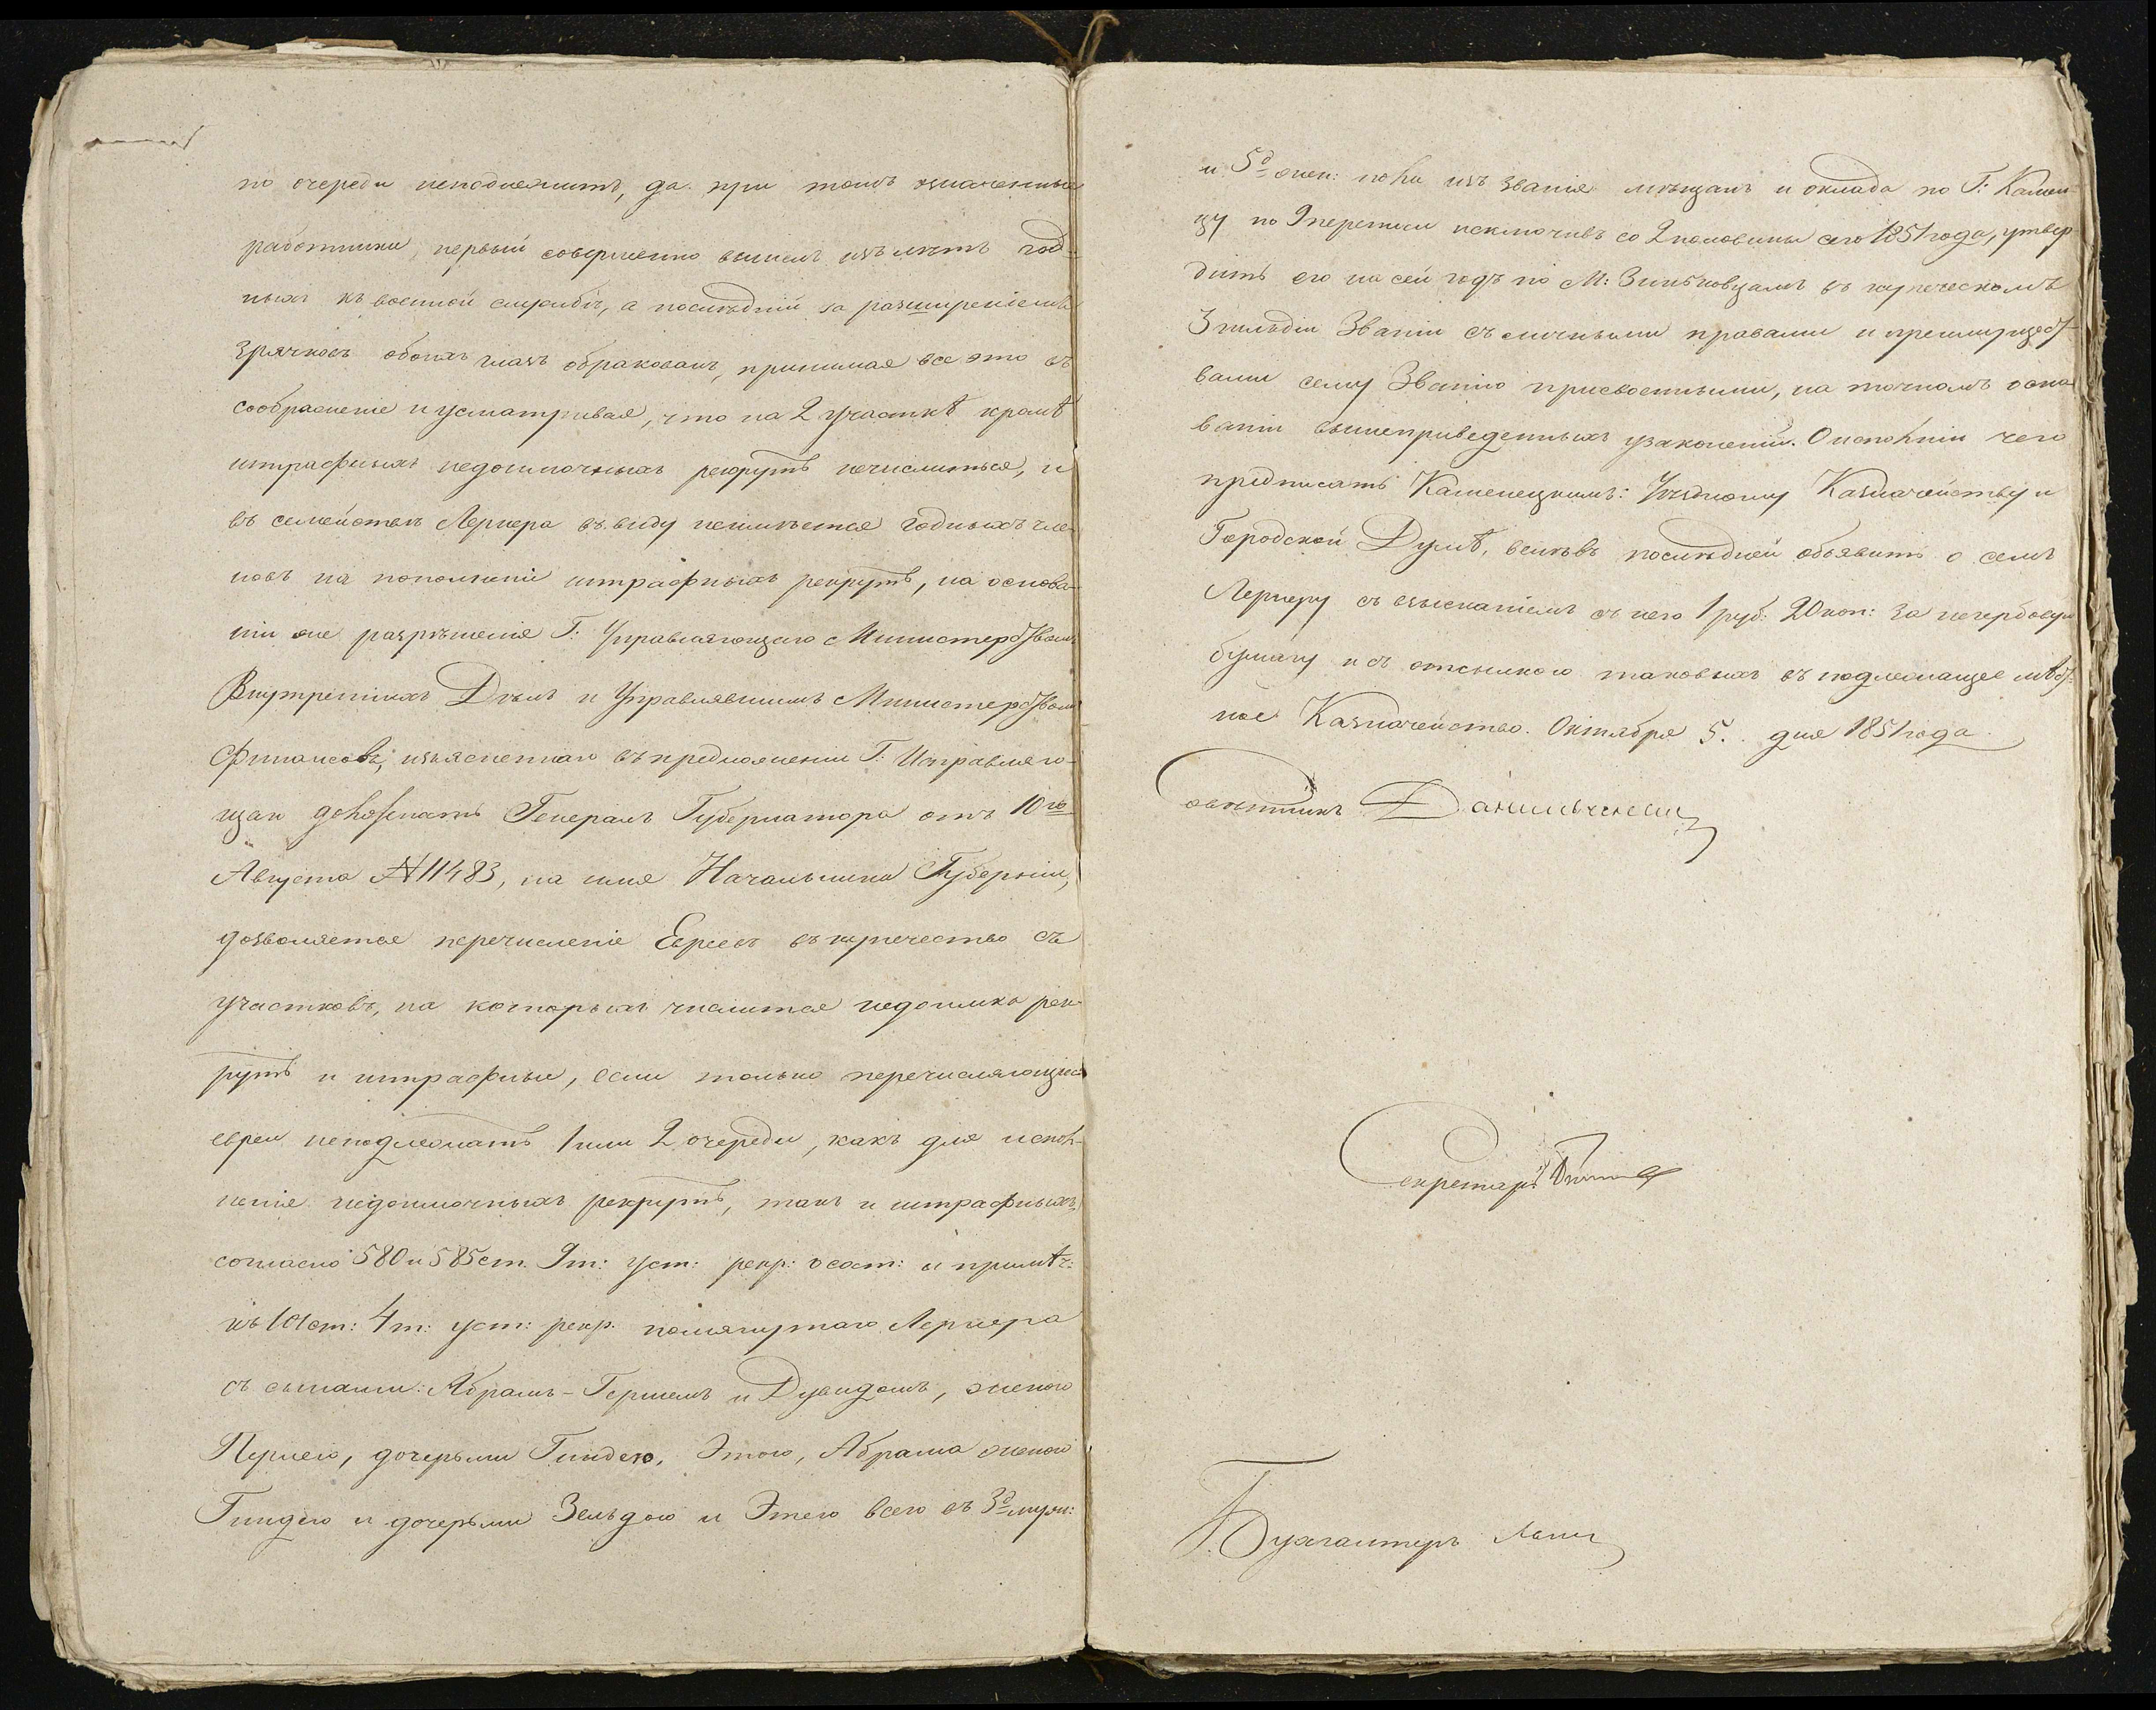 по очереди неподлежитъ, да при томъ означенные
работники, первый совершенно вышелъ изъ лѣтъ год-
ныхъ къ военной службѣ, а послѣдній за разширеніемъ
зрачковъ обоихъ глазъ обракованъ, принимая все это въ
соображеніе и усматривая, что на 2 участкѣ кромѣ
штрафныхъ недоимочныхъ рекрутъ нечислится, и
въ семействѣ Лернера въ виду неимѣется годныхъ чле-
новъ на пополненіе штрафныхъ рекрутъ, на основа-
ніи же разрѣшенія Г: Управляющаго Министерствомъ
Внутреннихъ Дѣлъ и Управлявшимъ Министерствомъ
Финансовъ, изъясненнаго въ предложеніи Г: Исправляю-
щаго должность Генералъ Губернатора отъ 10го
Августа №11483, на имя Начальника Губерніи,
дозволяется перечисленіе Евреевъ въ купечество съ
участковъ, на которыхъ числится недоимка рек-
рутъ и штрафные, если только перечисляющіеся
евреи неподлежатъ 1 или 2 очереди, какъ для испол-
ненія недоимочныхъ рекрутъ, такъ и штрафныхъ,
согласно 580 и 585 ст. 9 т: уст: рекр: о сост: и примѣч:
къ 101 ст: 4 т: уст: рекр: помянутаго Лернера
съ сынами: Абрамъ-Гершемъ и Дувидомъ, женою
Перлею, дочерьми Гиндею, Этою, Абрама женою
Гиндею и дочерьми Зельдою и Этею всего въ 3д муж:
и 5д жен: пола изъ званія мѣщанъ и оклада по Г: Камен-
цу по 9 переписи исключивъ со 2 половины сего 1851 года, утвер-
дить его на сей годъ по М: Зиньковцамъ въ купеческомъ
3 гильдіи Званіи съ личными правами и преимущест-
вами сему Званію присвоенными, на точномъ осно-
ваніи вышеприведенныхъ узаконеній. О исполненіи чего
предписать Каменецкимъ: Уѣздному Казначейству и
Городской Думѣ, велѣвъ послѣдней объявить о семъ
Лернеру съ взысканіемъ съ него 1 руб: 20 коп: за негербовую
бумагу и съ отсылкою таковыхъ въ подлежащее мѣст-
ное Казначейство. Октября 5. дня 1851 года
Совѣтникъ Данильчукъ
Секретарь
Бухгалтеръ